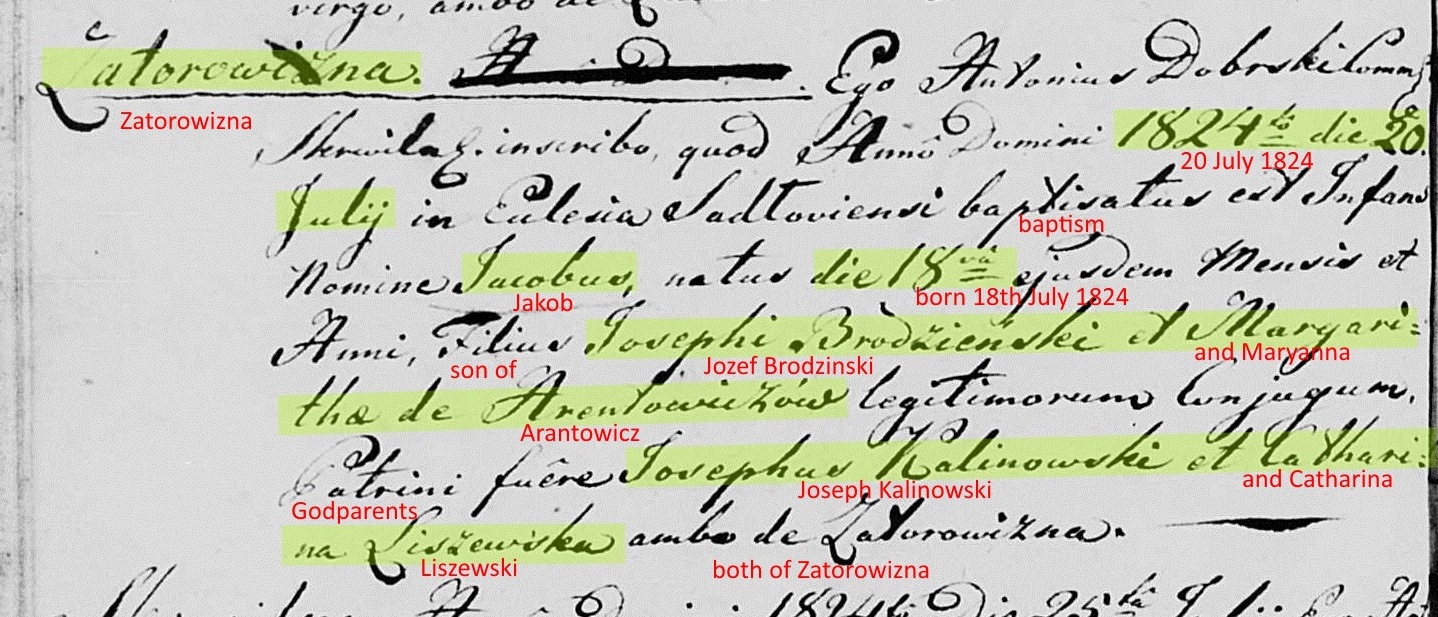 virgo, ambo de
Zatorowizna. Ego Antonius Dobrski Comm
Zatorowizna
inscribo, quod Anno Domini 1824to die 20.
20 July 1824
Julij in Eclesia Sadloviensi baptisatus est Infans
baptism
Nomine Jacobus, natus die 18va ejusdem Mensis et
Jakob
born 18th July 1824
Anni, Filius Josephi Brodzieński et Margari=
son of
Jozef Brodzinski
and Maryanna
thæ de Arentowiczów legitimorum Conjugum.
Arantowicz
Patrini fuêre Josephus Kalinowski et Cathari=
Godparents
Joseph Kalinowski
and Catharina
na Liszewska ambo de Zatorowizna.
Liszewski
both of Zatorowizna
Domini 1824to Die 25ta Julij Ego